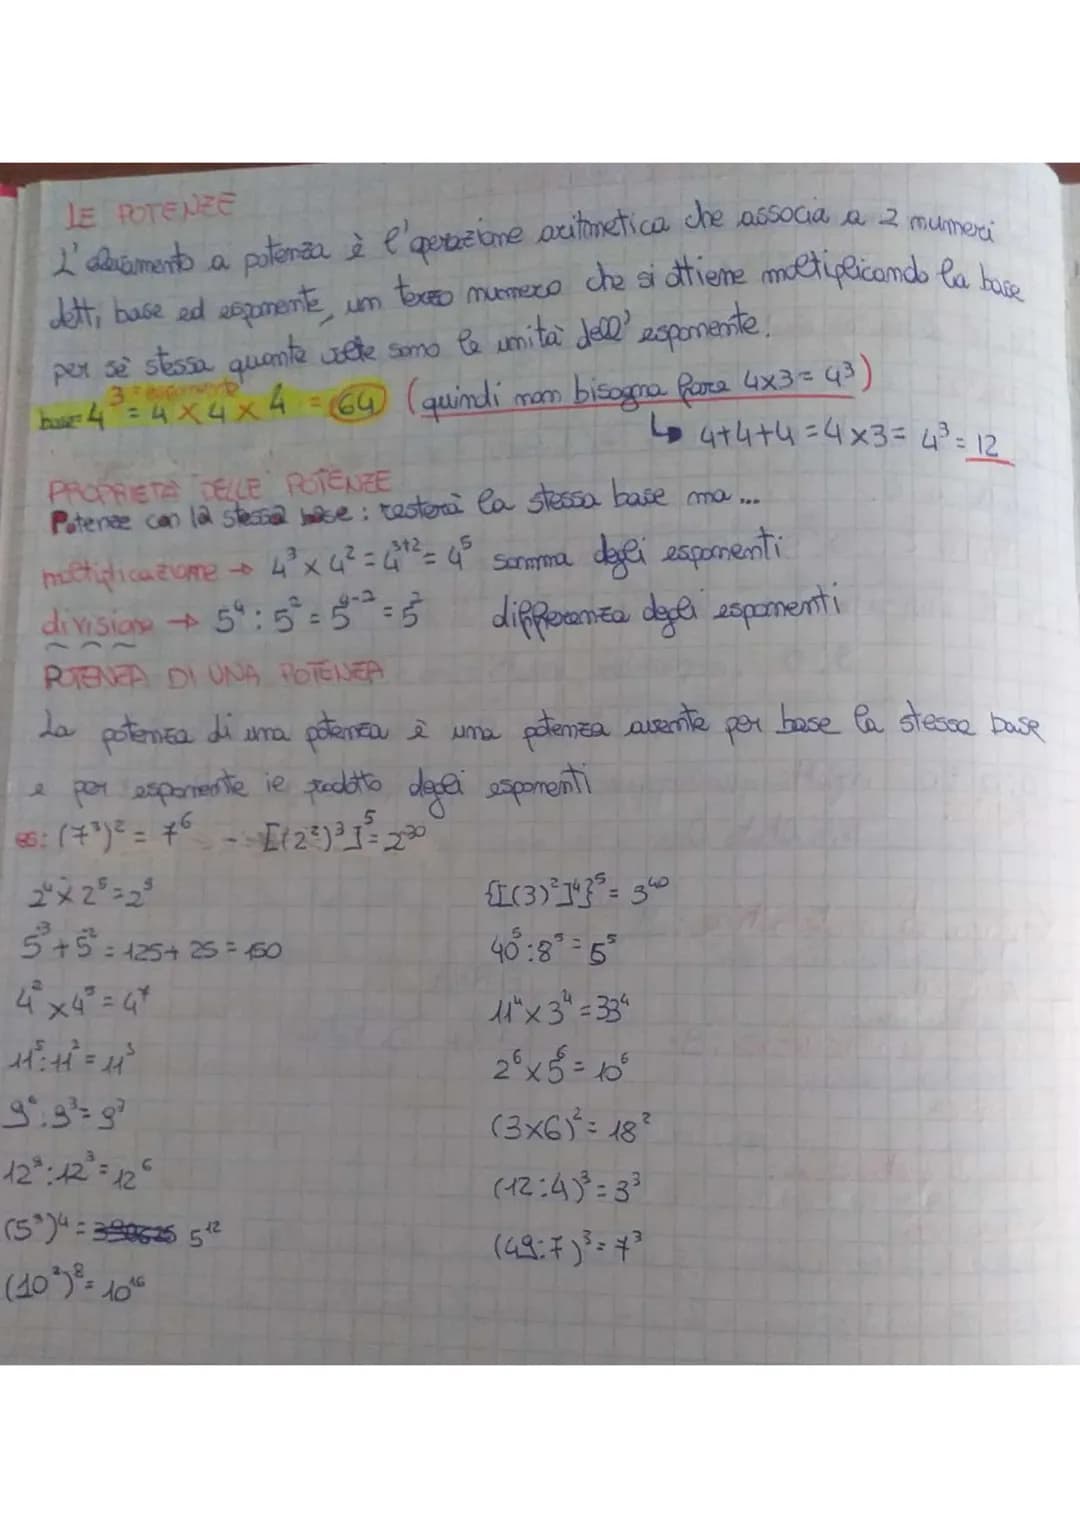 LE POTENZE
L'elevamento a potenza è l'operazione aritmetica che associa a 2 numeri
detti base ed esponente, un terzo numero che si ottiene moltiplicando la base
per sè stessa quante volte sono le unità dell'esponente.
base= 4³ = esponente = 4 × 4 × 4 = 64 (quindi non bisogna fare 4x3= 4³)
↳ 4+4+4 = 4x3= 4³= 12
PROPRIETÀ DELLE POTENZE
Potenze con la stessa base: resterà la stessa base ma...
moltiplicazione → 4³ x 4² = 4³⁺² = 4⁵ somma degli esponenti
divisione → 5⁹ : 5² = 5⁹⁻² = 5⁷ differenza degli esponenti
POTENZA DI UNA POTENZA
La potenza di una potenza è una potenza avente per base la stessa base
e per esponente il prodotto degli esponenti
es: (7³)² = 7⁶ - [(2²)³]⁵ = 2³⁰
2⁴ x 2⁵ = 2⁹
5³ + 5² = 125 + 25 = 150
4² x 4⁵ = 4⁷
11⁵ : 11² = 11³
9⁶ : 9³ = 9³
12⁹ : 12³ = 12⁶
(5³)⁴ = 5¹²
(10²)⁸ = 10¹⁶
{[(3)²]⁴}⁵ = 3⁴⁰
40⁵ : 8⁵ = 5⁵
11⁴ x 3⁴ = 33⁴
2⁶ x 5⁶ = 10⁶
(3x6)² = 18²
(12:4)³ = 3³
(49:7)³ = 7³